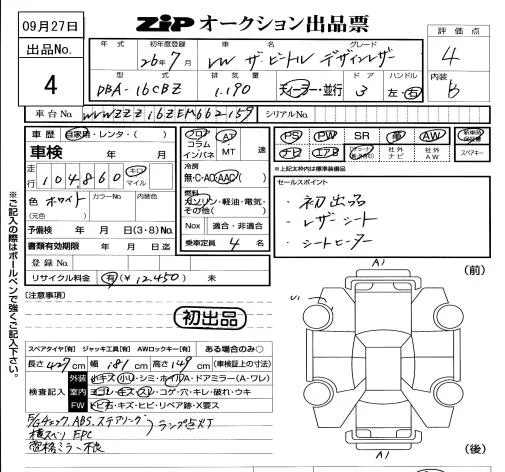 09月27日
ZIP オークション出品票
出品No.
4
年式 初年度登録 車名 グレード
26年7月 VW ザ・ビートル デザインレザー
型式 排気量 ドア ハンドル
DBA-16CBZ 1.190 ディーラー・並行 3 左・右
評価点
4
内装
b
車台No. WVWZZZ16ZEM662159 シリアルNo.
車歴 自家用・レンタ・( )
車検 年 月
走行 104,860 キロ マイル
色 ホワイト カラーNo. 内装色
(元色)
予備検 年 月 日(3・8)No.
書類有効期限 年 月 日迄
登録No.
リサイクル料金 有(¥12,450) 未
フロア コラム インパネ AT・MT 速
冷房
無・C・AC・AAC( )
燃料
ガソリン・軽油・電気・その他( )
Nox 適合・非適合
乗車定員 4 名
PS PW SR 革 AW 新車時保証書
ナビ エアB 社外ナビ 社外AW スペアキー
※上記太枠内は標準装備品
セールスポイント
・初出品
・レザーシート
・シートヒーター
※ご記入の際はボールペンで強くご記入下さい。
[注意事項]
初出品
スペアタイヤ[有] ジャッキ工具[有] AWロックキー[有] ある場合のみ○
長さ 427cm 幅 181cm 高さ 149cm (車検証上の寸法)
検査記入
外装 小キズ・小凹・シミ・ホイルA・ドアミラー(A・ワレ)
室内 ヨゴレ・キズ・スレ・コゲ・穴・キレ・破れ・ウキ
FW トビ石・キズ・ヒビ・リペア跡・X要ス
E/Gチェック, ABS, ステアリング ランプ点灯
横スベリ EPC
電格ミラー不良
A1
U1
(前)
A1
(後)